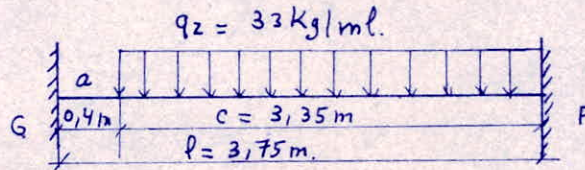 q2 = 33 Kg/ml.
a
G 0,4m c = 3,35 m
l = 3,75 m.